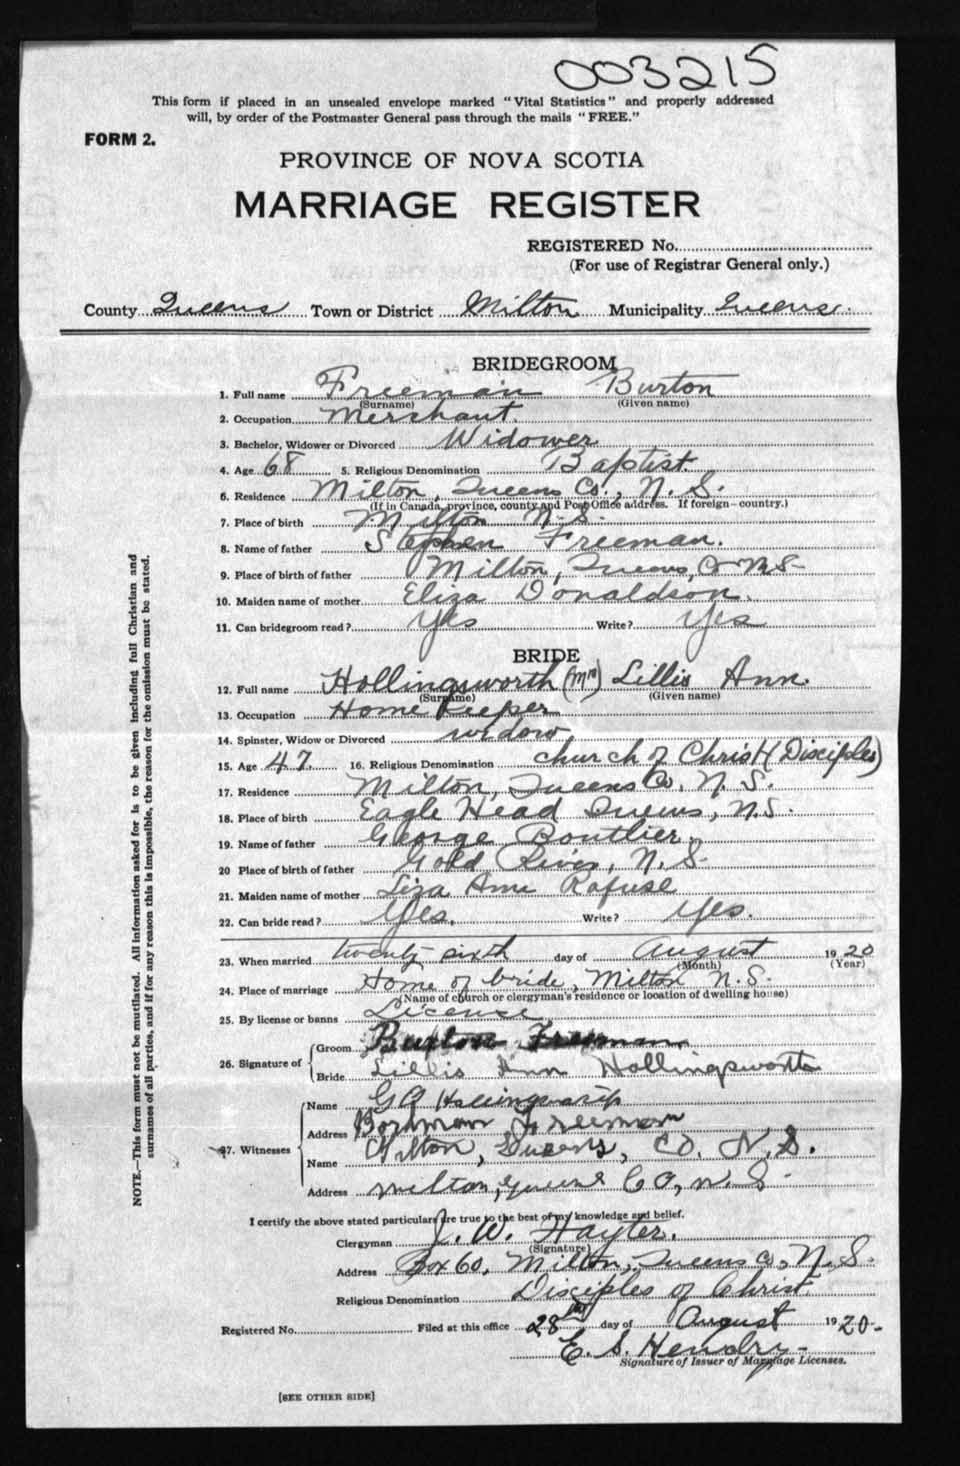 003215
This form if placed in an unsealed envelope marked "Vital Statistics" and properly addressed
will, by order of the Postmaster General pass through the mails "FREE."
FORM 2.
PROVINCE OF NOVA SCOTIA
MARRIAGE REGISTER
REGISTERED No.
(For use of Registrar General only.)
County Queens Town or District Milton Municipality Queens.
BRIDEGROOM
1. Full name Freeman Burton
(Surname) (Given name)
2. Occupation Merchant.
3. Bachelor, Widower or Divorced Widower
4. Age 68 5. Religious Denomination Baptist.
6. Residence Milton, Queens Co., N. S.
(If in Canada, province, county and Post Office address. If foreign—country.)
7. Place of birth Milton N. S.
8. Name of father Stephen Freeman.
9. Place of birth of father Milton, Queens, Co N.S.
10. Maiden name of mother Eliza Donaldson.
11. Can bridegroom read? Yes Write? Yes
BRIDE
12. Full name Hollingsworth (Mrs) Lillis Ann.
(Surname) (Given name)
13. Occupation Home Keeper
14. Spinster, Widow or Divorced widow
15. Age 47 16. Religious Denomination Church of Christ (Disciples)
17. Residence Milton, Queens Co. N. S.
18. Place of birth Eagle Head Queens, N.S.
19. Name of father George Boutlier.
20 Place of birth of father Gold River, N. S.
21. Maiden name of mother Liza Ann Rafuse
22. Can bride read? Yes. Write? yes.
23. When married twenty sixth day of August 1920
(Month) (Year)
24. Place of marriage Home of bride, Milton N. S.
(Name of church or clergyman's residence or location of dwelling house)
25. By license or banns License
26. Signature of Groom Burton Freeman
Bride Lillis Ann Hollingsworth
27. Witnesses
Name G A Hollingsworth
Address Freeman
Name Milton, Queens, CO. N. S.
Address Milton, Queens CO, N. S.
I certify the above stated particulars are true to the best of my knowledge and belief.
Clergyman J. W. Hayter.
(Signature)
Address Box 60, Milton, Queens Co, N. S.
Religious Denomination Disciples of Christ.
Registered No. Filed at this office 28th day of August 1920-
E. S. Hendry-
Signature of Issuer of Marriage Licenses.
[SEE OTHER SIDE]
NOTE.—This form must not be mutilated. All information asked for is to be given including full Christian and
surnames of all parties, and if for any reason this is impossible, the reason for the omission must be stated.